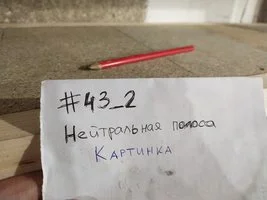 #43_2
Нейтральная полоса
Картинка